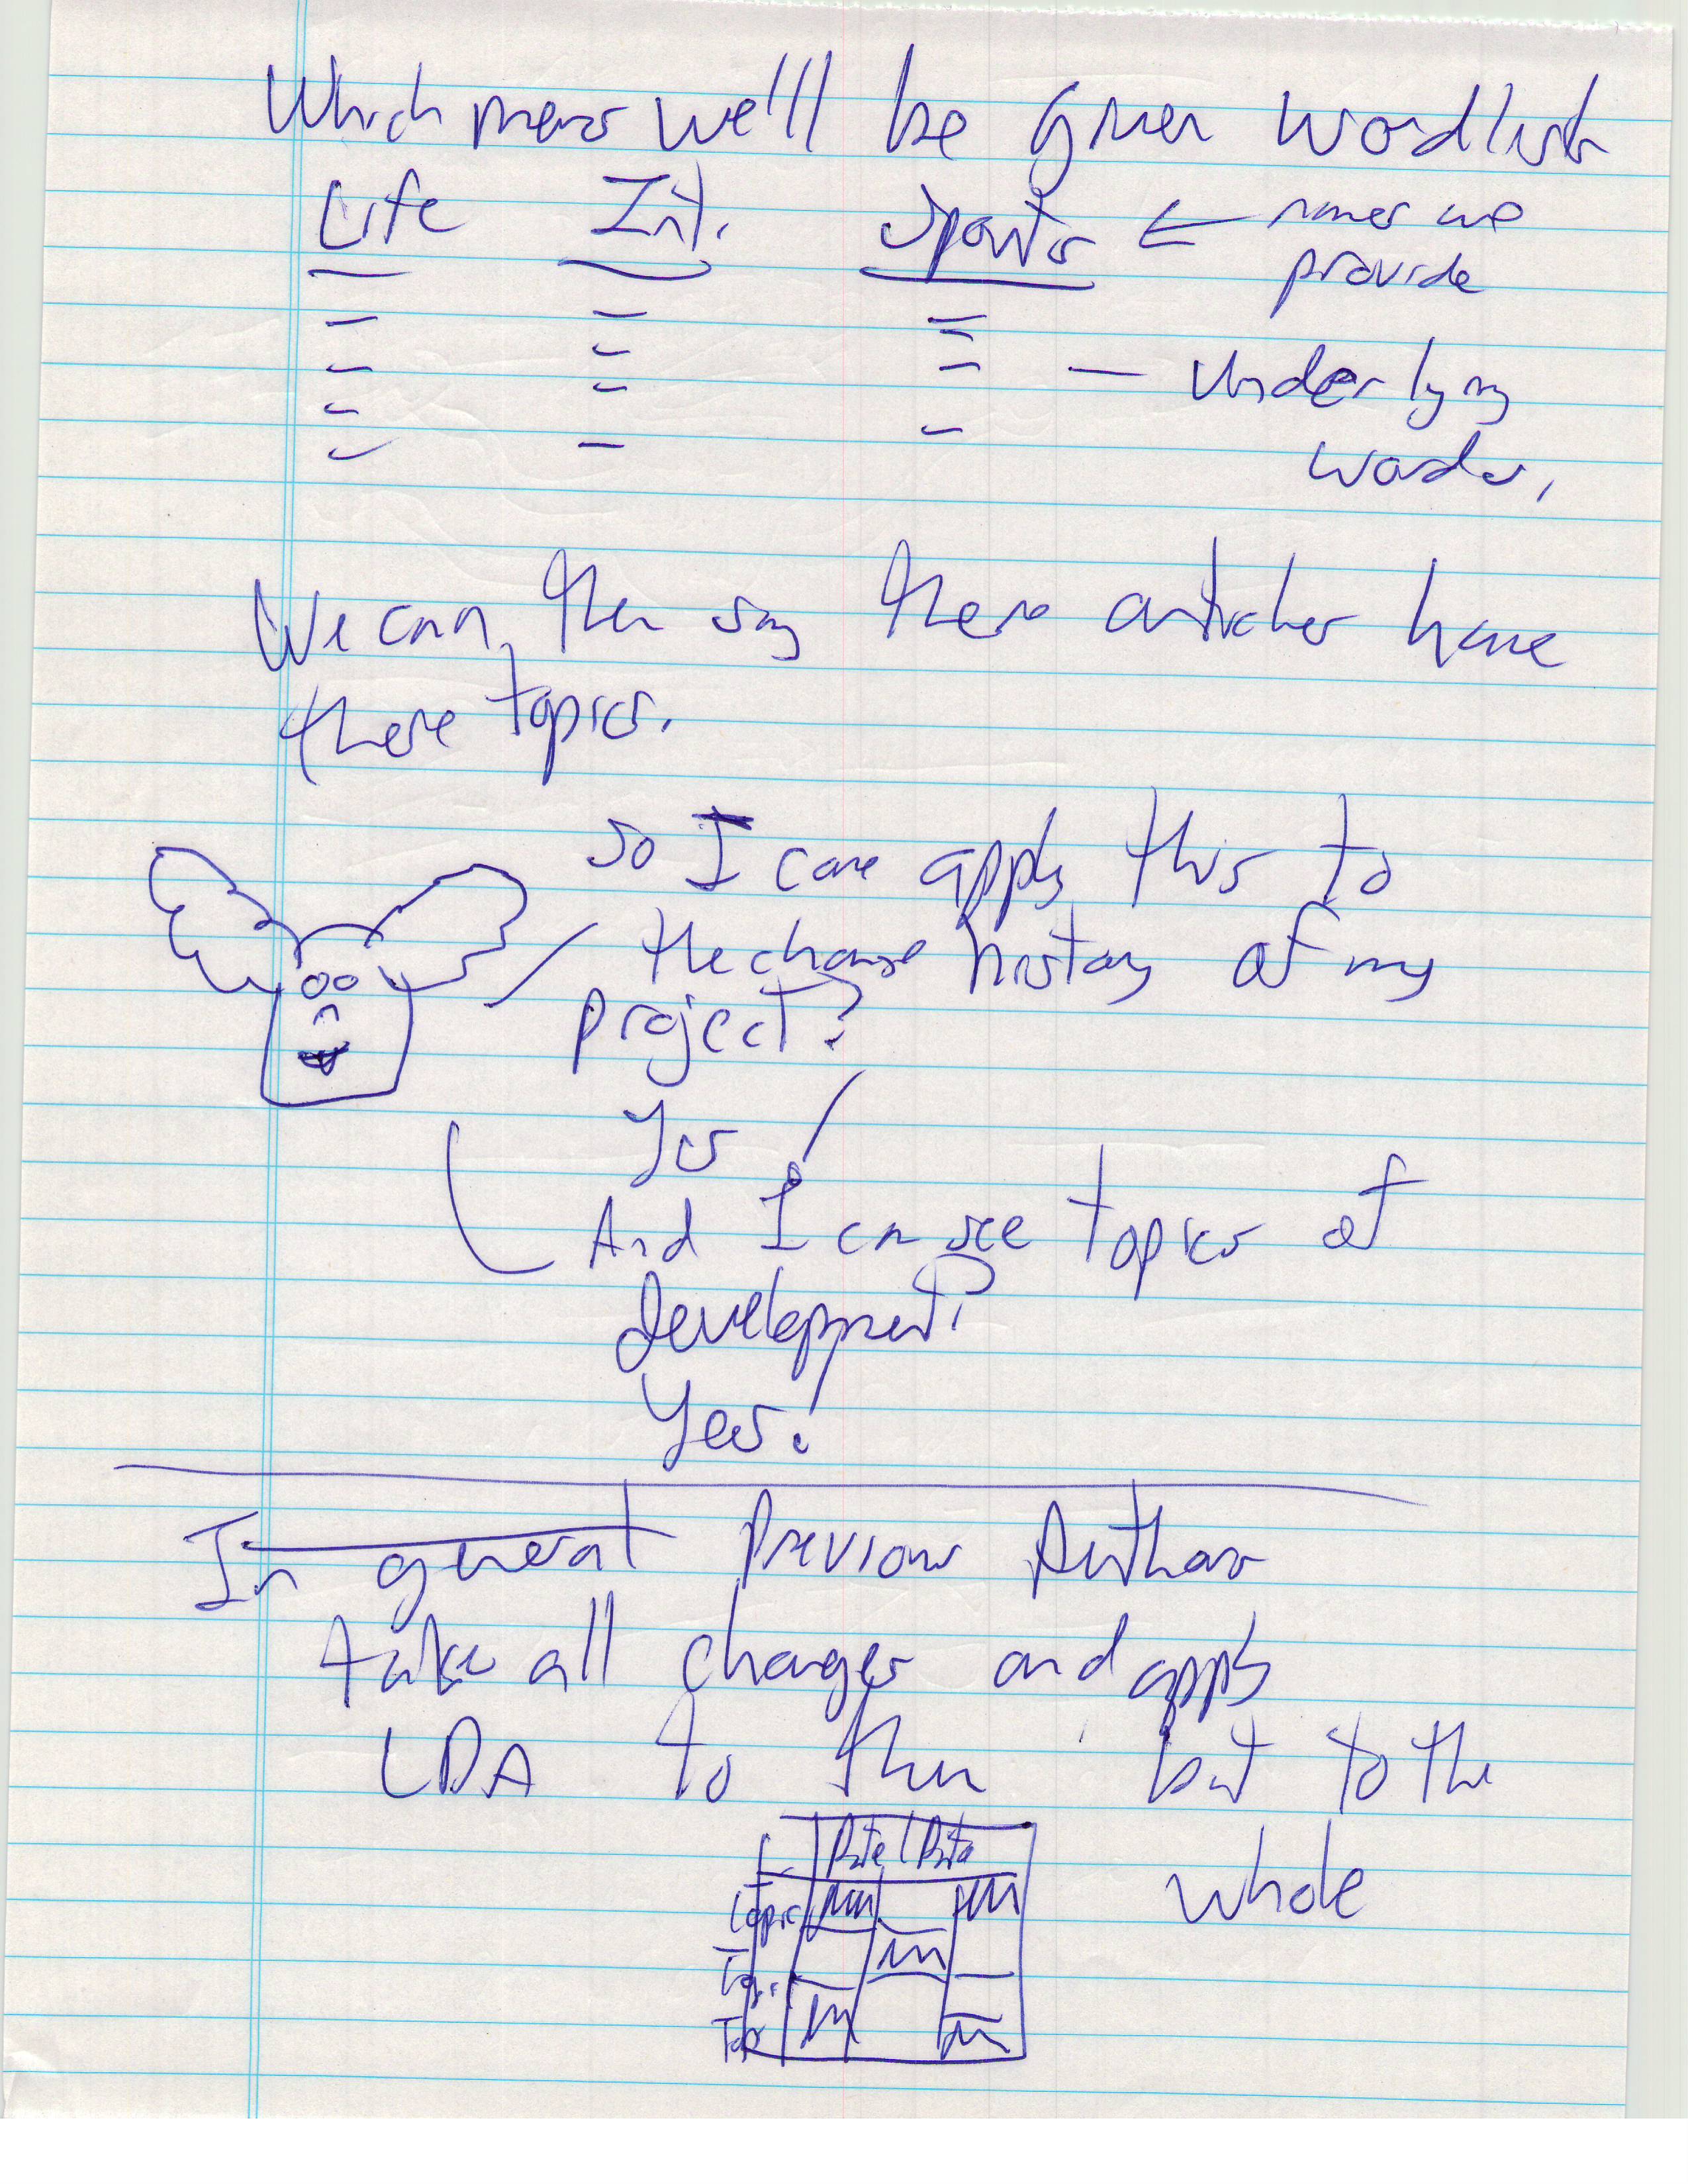 Which means we'll be given wordlists
Life Int. Sports ← names we
provide
— Underlying
words.
We can then say these articles have
these topics.
So I can apply this to
the change history of my
project?
Yes
And I can see topics of
development?
Yes!
In general Previous Authors
take all changes and apply
LDA to them but to the
whole
Date Date
Topic
Topic
Top